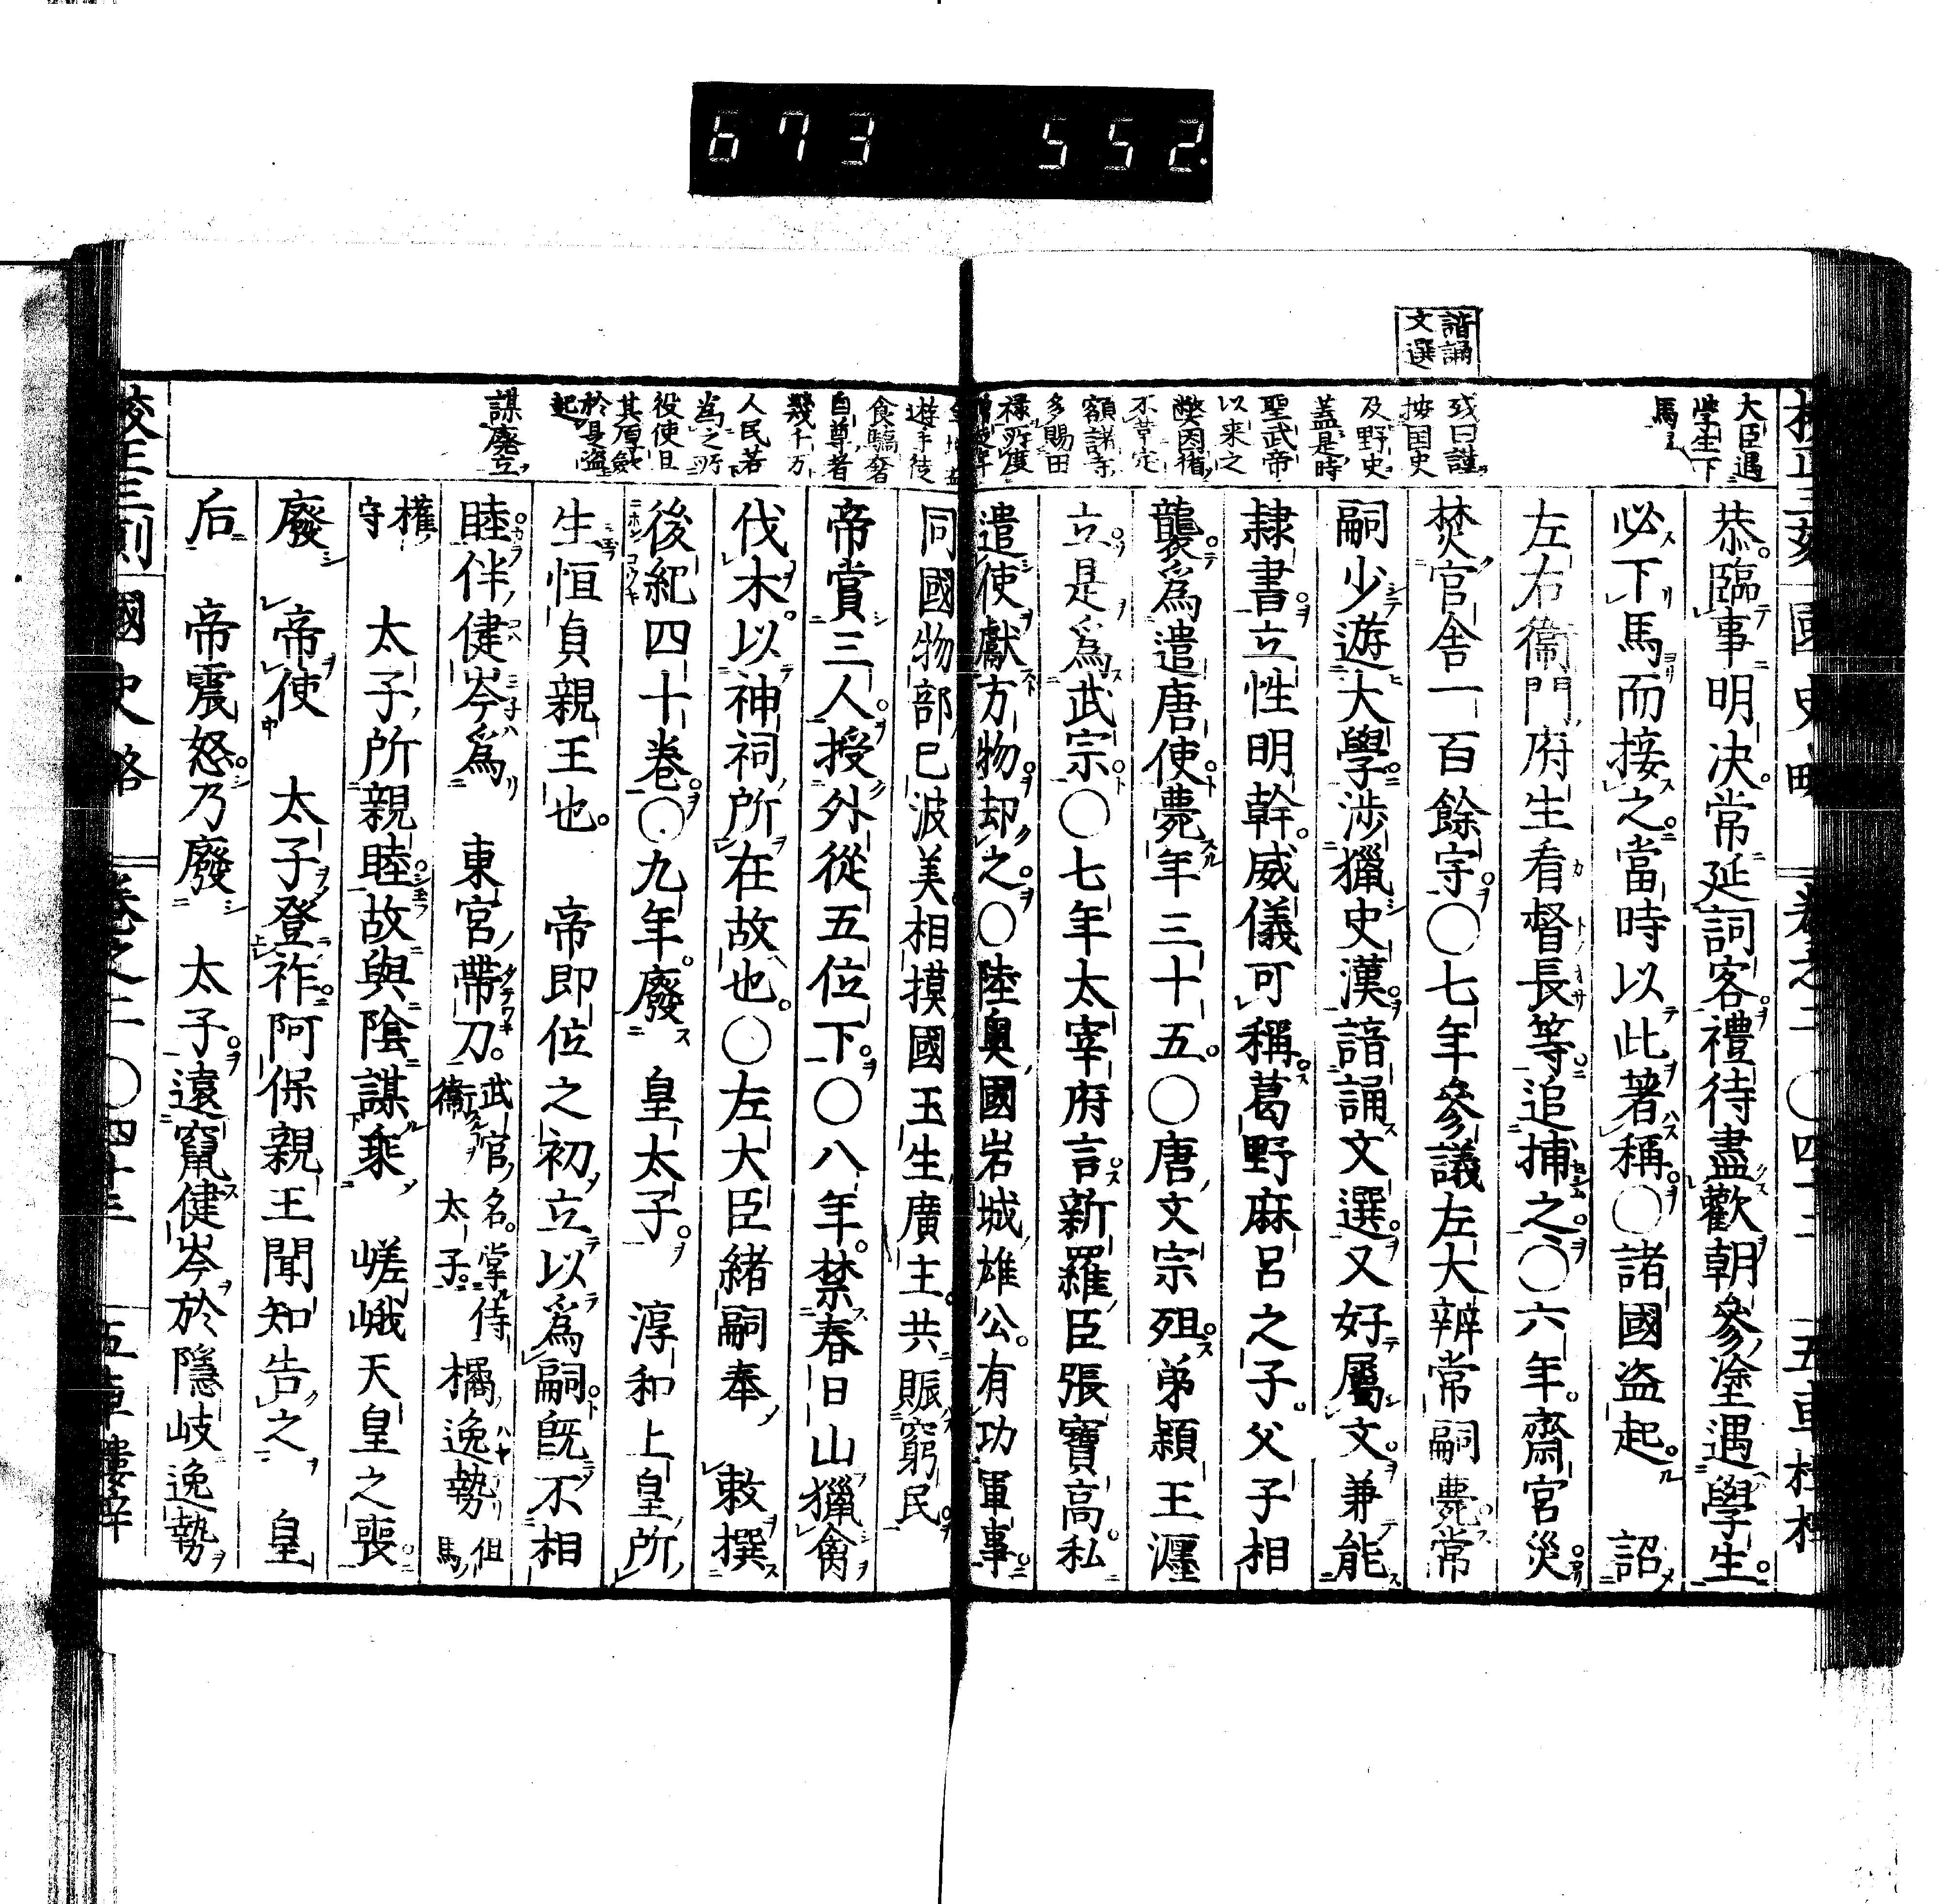 673 552.
諳誦
文選
大臣遇
学生下
馬
茂曰謹
按国史
及野史
蓋是時
聖武帝
以来之
弊因循
不革定
額諸寺
多賜田
遊手徒
食驕奢
自尊者
幾千万
人民若
役使且
於是盗
起
謀廢立
恭臨事明决常延詞客禮待盡歡朝參塗遇學生
必下馬而接之當時以此著稱〇諸國盗起 詔
左右衞門府生看督長等追捕之〇六年齋宮災
焚官舎一百餘宇〇七年參議左大辨常嗣薨常
嗣少遊大學渉獵史漢諳誦文選又好屬文兼能
隷書立性明幹威儀可稱葛野麻呂之子父子相
襲爲遣唐使薨年三十五〇唐文宗殂弟潁王瀍
立是爲武宗〇七年太宰府言新羅臣張寶高私
遣使獻方物却之〇陸奥國岩城雄公有功軍事
同國物部已波美相摸國玉生廣主共賑窮民
帝賞三人授外從五位下〇八年禁春日山獵禽
伐木以神祠所在故也〇左大臣緒嗣奉 敕撰
後紀四十巻〇九年廢 皇太子 淳和上皇所
生恒貞親王也 帝即位之初立以爲嗣旣不相
睦伴健岑爲 東宮帶刀 武官名掌侍衞太子 橘逸勢 但馬
權守 太子所親睦故與陰謀乘 嵯峨天皇之喪
廢 帝使 太子登祚阿保親王聞知告之 皇
后 帝震怒乃廢 太子遠竄健岑於隱岐逸勢
國史略